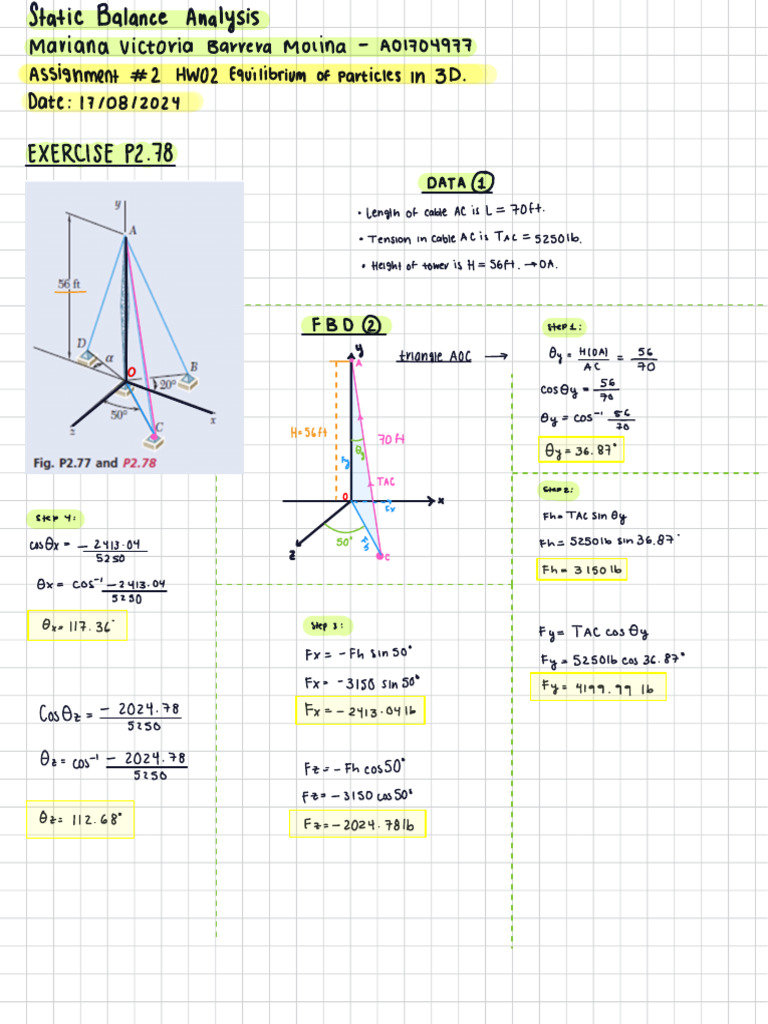 Static Balance Analysis
Mariana Victoria Barrera Molina - A01704977
Assignment #2 HW02 Equilibrium of particles in 3D.
Date: 17/08/2024
EXERCISE P2.78
y
A
56 ft
D
α
O
B
20°
50°
z
x
C
Fig. P2.77 and P2.78
DATA 1
• Length of cable AC is L = 70ft.
• Tension in cable AC is TAC = 5250lb.
• Height of tower is H = 56ft. → OA.
FBD 2
triangle AOC →
y
A
H=56ft
θy
70 ft
Fy
TAC
O
Fx
x
z
50°
C
Step 1:
θy = H(OA)/AC = 56/70
cosθy = 56/70
θy = cos⁻¹ 56/70
θy = 36.87°
Step 2:
Fh = TAC sin θy
Fh = 5250lb sin 36.87°
Fh = 3150 lb
Fy = TAC cos θy
Fy = 5250lb cos 36.87°
Fy = 4199.99 lb
Step 3:
Fx = -Fh sin 50°
Fx = -3150 sin 50°
Fx = -2413.04 lb
Fz = -Fh cos 50°
Fz = -3150 cos 50°
Fz = -2024.78lb
Step 4:
cosθx = -2413.04/5250
θx = cos⁻¹ -2413.04/5250
θx = 117.36°
Cosθz = -2024.78/5250
θz = cos⁻¹ -2024.78/5250
θz = 112.68°